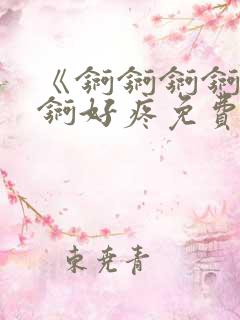 《锕锕锕锕
锕好疼免費
東尭青